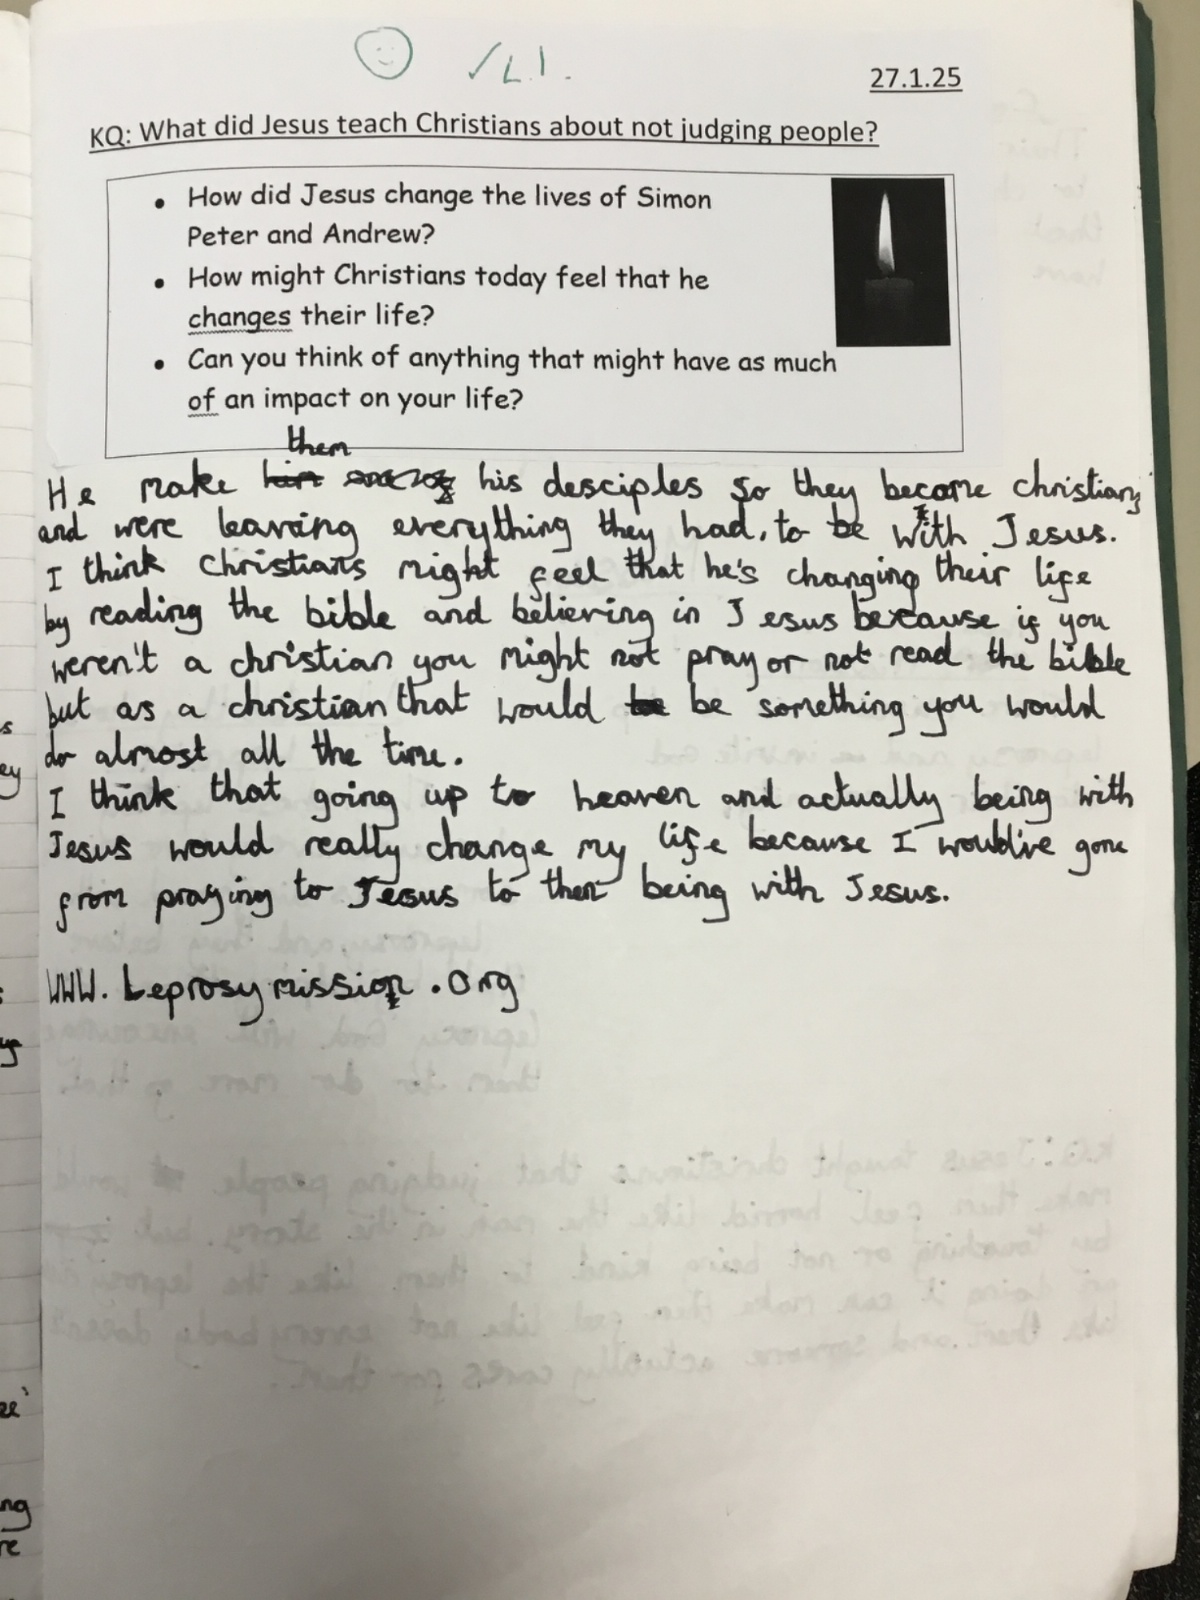 ✓ L.I.
27.1.25
KQ: What did Jesus teach Christians about not judging people?
• How did Jesus change the lives of Simon
Peter and Andrew?
• How might Christians today feel that he
changes their life?
• Can you think of anything that might have as much
of an impact on your life?
them
He make his desciples so they become christians
and were leaving everything they had, to be with Jesus.
I think christians might feel that he's changing their life
by reading the bible and believing in Jesus because if you
weren't a christian you might not pray or not read the bible
but as a christian that would be be something you would
do almost all the time.
I think that going up to heaven and actually being with
Jesus would really change my life because I would've gone
from praying to Jesus to then being with Jesus.
WWW.Leprosymission.org